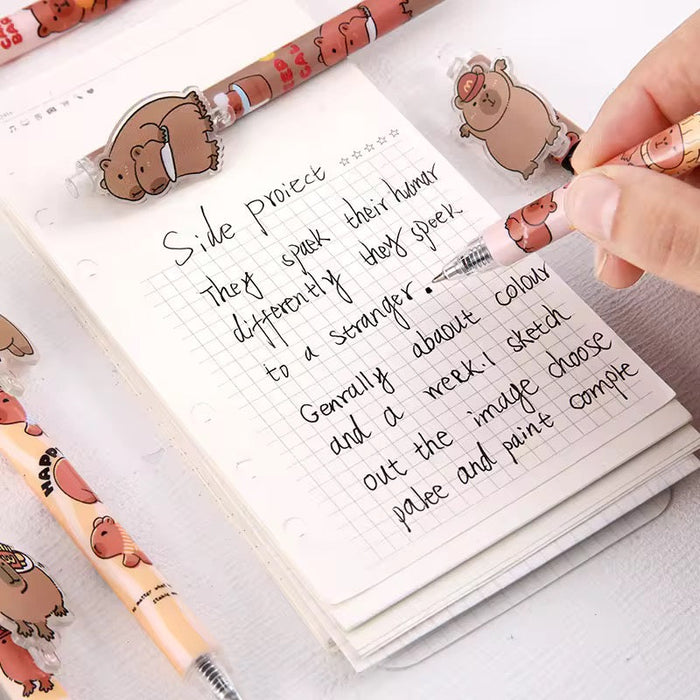 Side project
They spaek their humar
differently they speek
to a stranger.
Genrally abaout colour
and a werk.I sketch
out the image choose
palee and paint comple
HAPP